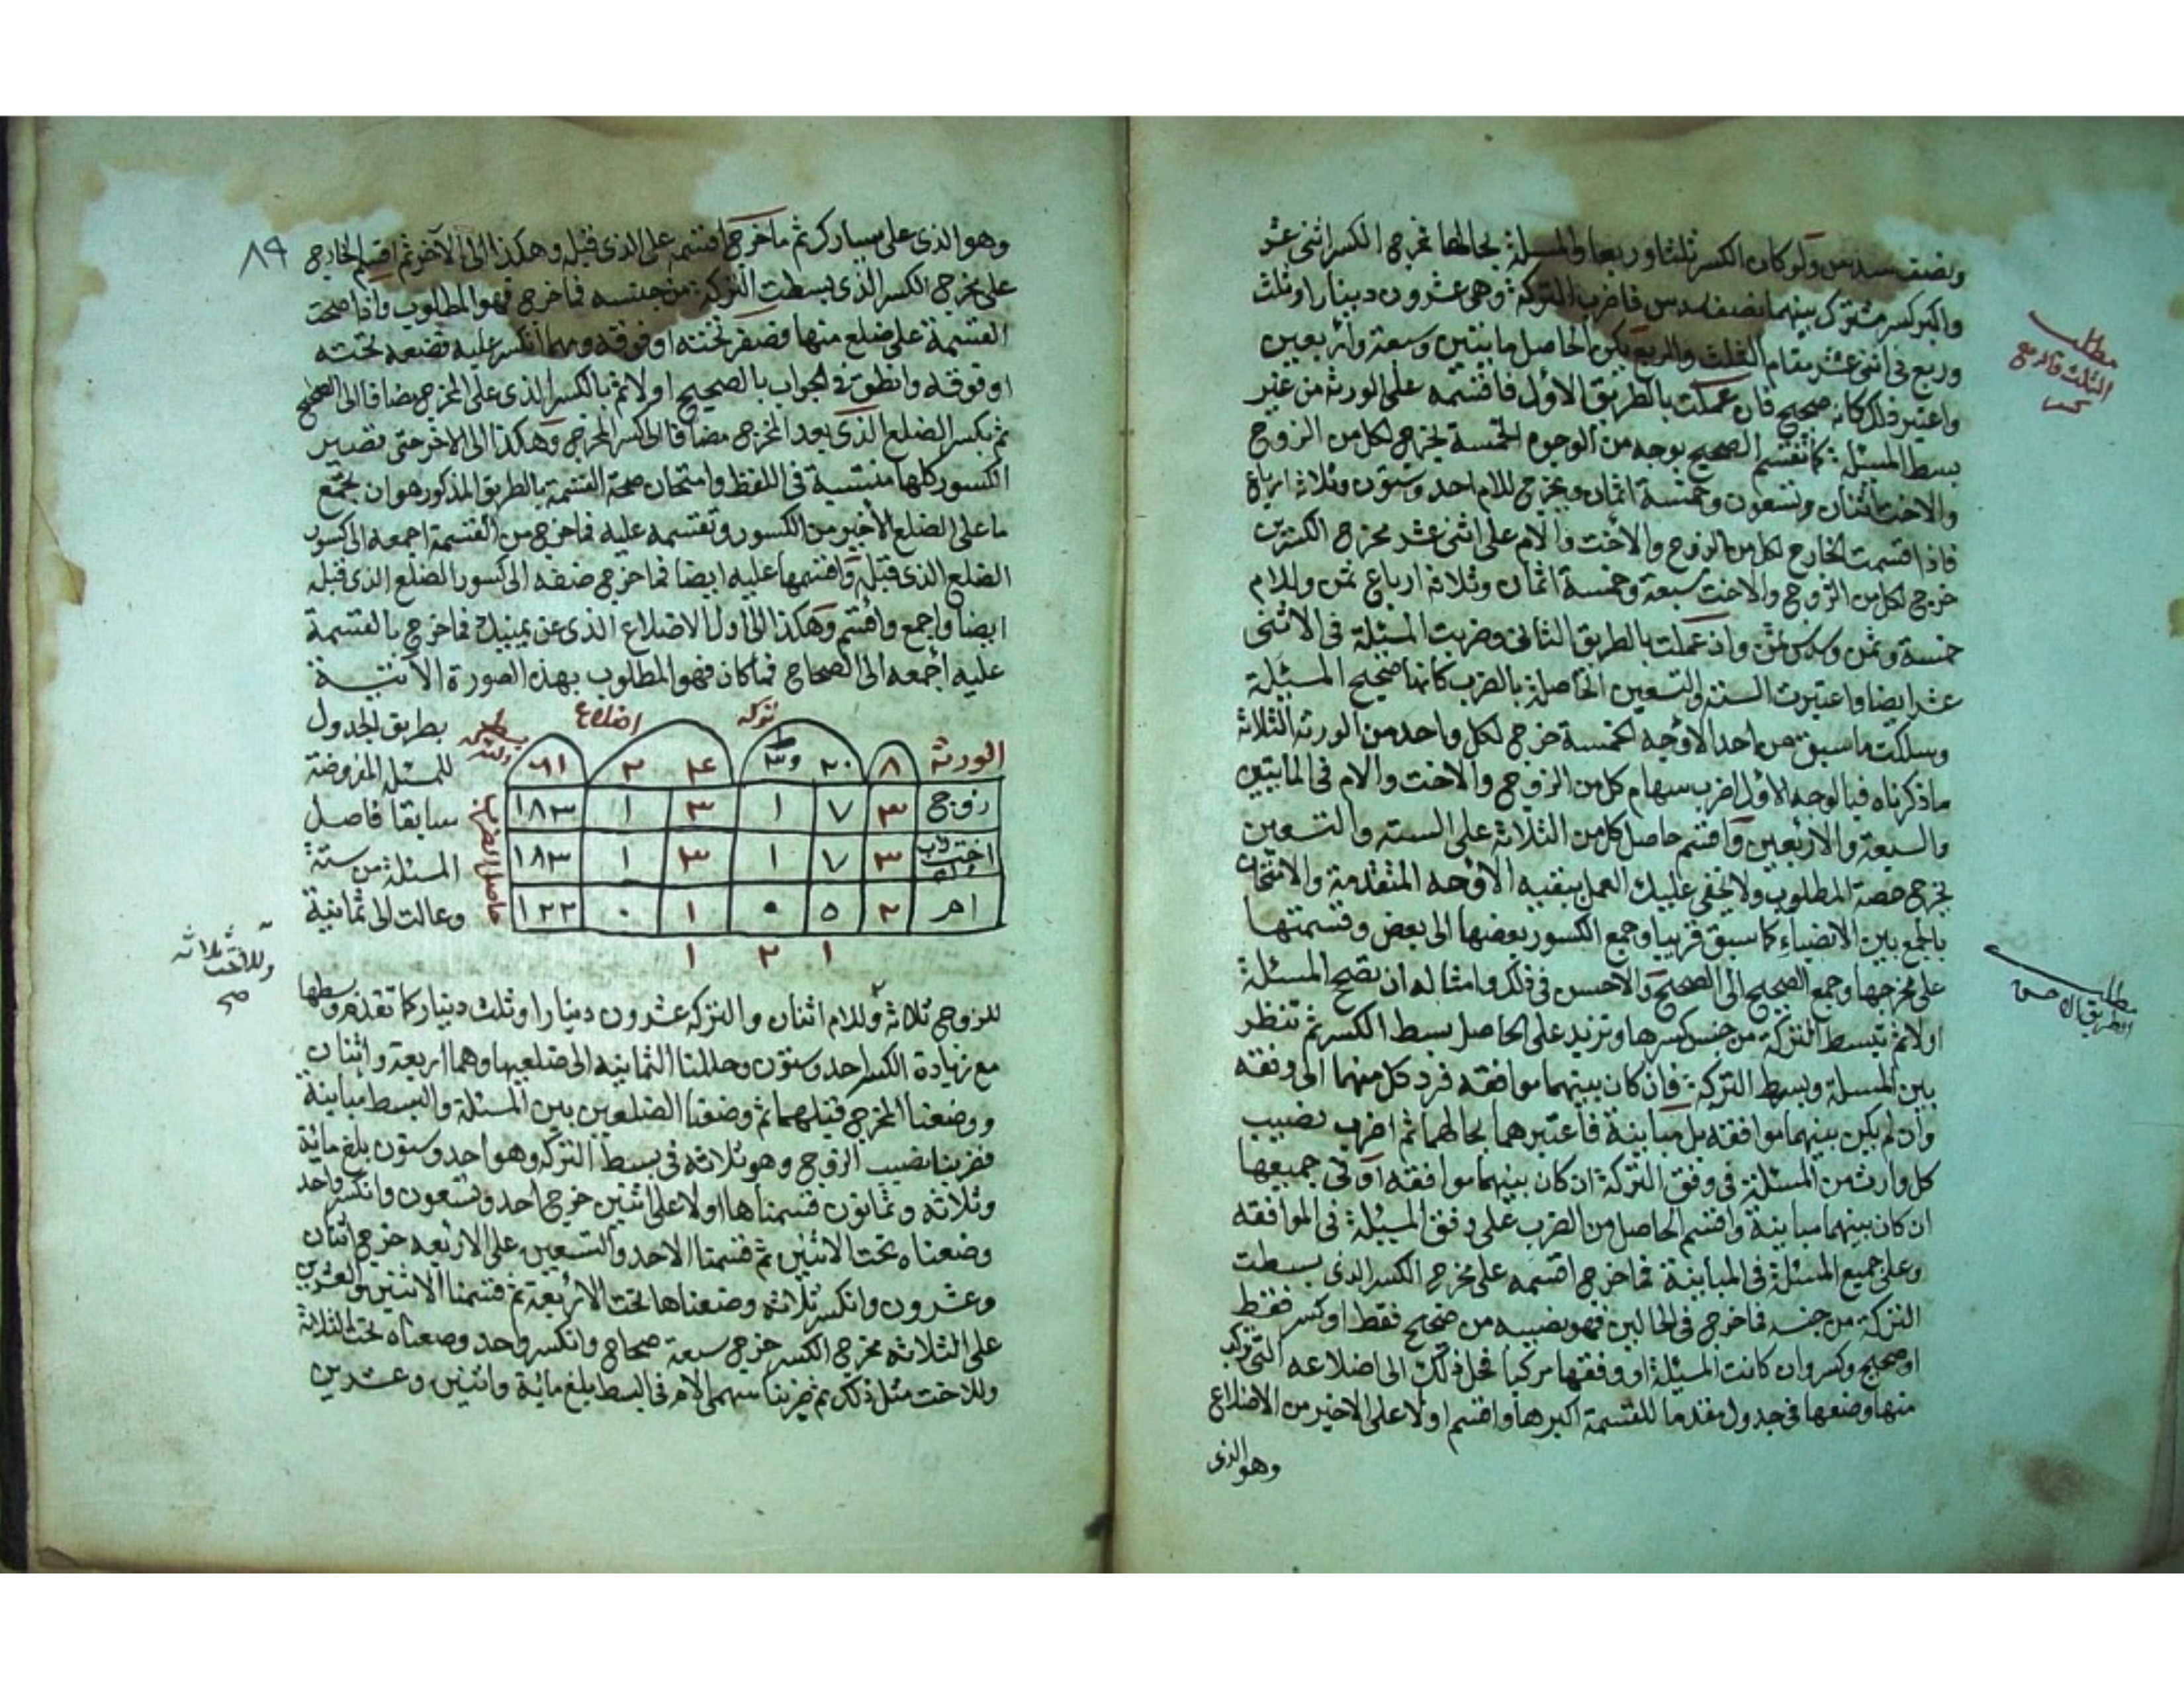 ونصف سدس ولو كان الكسر ثلثا وربعا والمسئلة بحالها فمخرج الكسر اثنى عشر
واكبر كسر مشترك بينهما نصف سدس فاضرب التركة وهى عشرون دينارا وثلث
وربع فى اثنى عشر مقام الثلث والربع يكن الحاصل مايتين وسبعة واربعين
واعتبر ذلك كانه صحيح فان عملت بالطريق الاول فاقسمه على الورثة من غير
بسط المسئلة كما تقسم الصحيح بوجه من الوجوه الخمسة يخرج لكل من الزوج
والاخت اثنان وتسعون وخمسة اثمان ويخرج للام احد وستون وثلاثة ارباع
فاذا قسمت الخارج لكل من الزوج والاخت والام على اثنى عشر مخرج الكسرين
خرج لكل من الزوج والاخت سبعة وخمسة اثمان وثلاثة ارباع ثمن وللام
خمسة وثمن وسدس ثمن وان عملت بالطريق الثانى وضربت المسئلة فى الاثنى
عشر ايضا واعتبرت الستة والتسعين الحاصلة بالضرب كانها صحيح المسئلة
وسلكت ما سبق من احد الاوجه الخمسة خرج لكل واحد من الورثة الثلاثة
ما ذكرناه فبالوجه الاول اضرب سهام كل من الزوج والاخت والام فى المايتين
والسبعة والاربعين واقسم حاصل كل من الثلاثة على الستة والتسعين
يخرج حصة المطلوب ولا يخفى عليك العمل ببقية الاوجه المتقدمة والامتحان
بالجمع بين الانصباء كما سبق قريبا وجمع الكسور بعضها الى بعض وقسمتها
على مخرجها وجمع الصحيح الى الصحيح والاحسن فى ذلك وامثاله ان تصحح المسئلة
اولا ثم تبسط التركة من جنس كسرها وتزيد على الحاصل بسط الكسر ثم تنظر
بين المسئلة وبسط التركة فان كان بينهما موافقه فرد كل منهما الى وفقه
وان لم يكن بينهما موافقه بل مباينة فاعتبرهما بحالهما ثم اضرب نصيب
كل وارث من المسئلة فى وفق التركة ان كان بينهما موافقه او فى جميعها
ان كان بينهما مباينة واقسم الحاصل من الضرب على وفق المسئلة فى الموافقه
وعلى جميع المسئلة فى المباينة فما خرج اقسمه على مخرج الكسر الذى بسطت
التركة من جنسه فما خرج فى الحالين فهو نصيبه من صحيح فقط او كسر فقط
او صحيح وكسر وان كانت المسئلة او وفقها مركبا فحل ذلك الى اضلاعه التى تركب
منها وضعها فى جدول مقدما للقسمة اكبرها واقسم اولا على الاخير من الاضلاع
وهو الذى
مطلب
الثلث والربع
مطلب
الطريق الاحسن
٨٩
وهو الذى على يسارك ثم ما خرج اقسمه على الذى قبله وهكذا الى الآخر ثم اقسم الخارج
على مخرج الكسر الذى بسطت التركة من جنسه فما خرج فهو المطلوب واذا صحت
القسمة على ضلع منها فصفر تحته او فوقه ومهما انكسر عليه فضعه تحته
او فوقه وانطق فى الجواب بالصحيح اولا ثم بالكسر الذى على المخرج مضافا الى الصحيح
ثم بكسر الضلع الذى بعد المخرج مضافا الى كسر المخرج وهكذا الى الاخر حتى تصير
الكسور كلها منتسبة فى اللفظ وامتحان صحة القسمة بالطريق المذكور هو ان تجمع
ما على الضلع الاخير من الكسور وتقسمه عليه فما خرج من القسمة اجمعه الى كسور
الضلع الذى قبله واقسمها عليه ايضا فما خرج ضفه الى كسور الضلع الذى قبله
ايضا واجمع واقسم وهكذا الى اول الاضلاع الذى عن يمينك فما خرج بالقسمة
عليه اجمعه الى الصحاح فما كان فهو المطلوب بهذه الصورة الآتية
بطريق الجدول
للمسئلة المفروضة
سابقا فاصل
المسئلة من ستة
وعالت الى ثمانية
تركه اضلاع
الورثة ٨ ٢٠ و٣ ٤ ٢ ٦١
زوج ٣ ٧ ١ ٣ ١ ١٨٣
اخت ٣ ٧ ١ ٣ ١ ١٨٣
ام ٢ ٥ ٠ ١ ٠ ١٢٢
١ ٢ ١
حاصل الضرب
للزوج ثلاثة وللام اثنان والتركه عشرون دينارا وثلث دينار كما تقدم وبسطها
وللاخت ثلاثه
صح
مع زيادة الكسر احد وستون وحللنا الثمانيه الى ضلعيها وهما اربعة واثنان
ووضعنا المخرج قبلهما ثم وضعنا الضلعين بين المسئلة والبسط مباينة
فضربنا نصيب الزوج وهو ثلاثه فى بسط التركه وهو احد وستون بلغ مائة
وثلاثه وثمانون قسمناها اولا على اثنين خرج احد وتسعون وانكسر واحد
وضعناه تحت الاثنين ثم قسمنا الاحد والتسعين على الاربعه خرج اثنان
وعشرون وانكسر ثلاثه وضعناها تحت الاربعة ثم قسمنا الاثنين والعشرين
على الثلاثه مخرج الكسر خرج سبعة صحاح وانكسر واحد وضعناه تحت الثلاثة
وللاخت مثل ذلك ثم ضربنا سهمى الام فى البسط بلغ مائة واثنين وعشرين